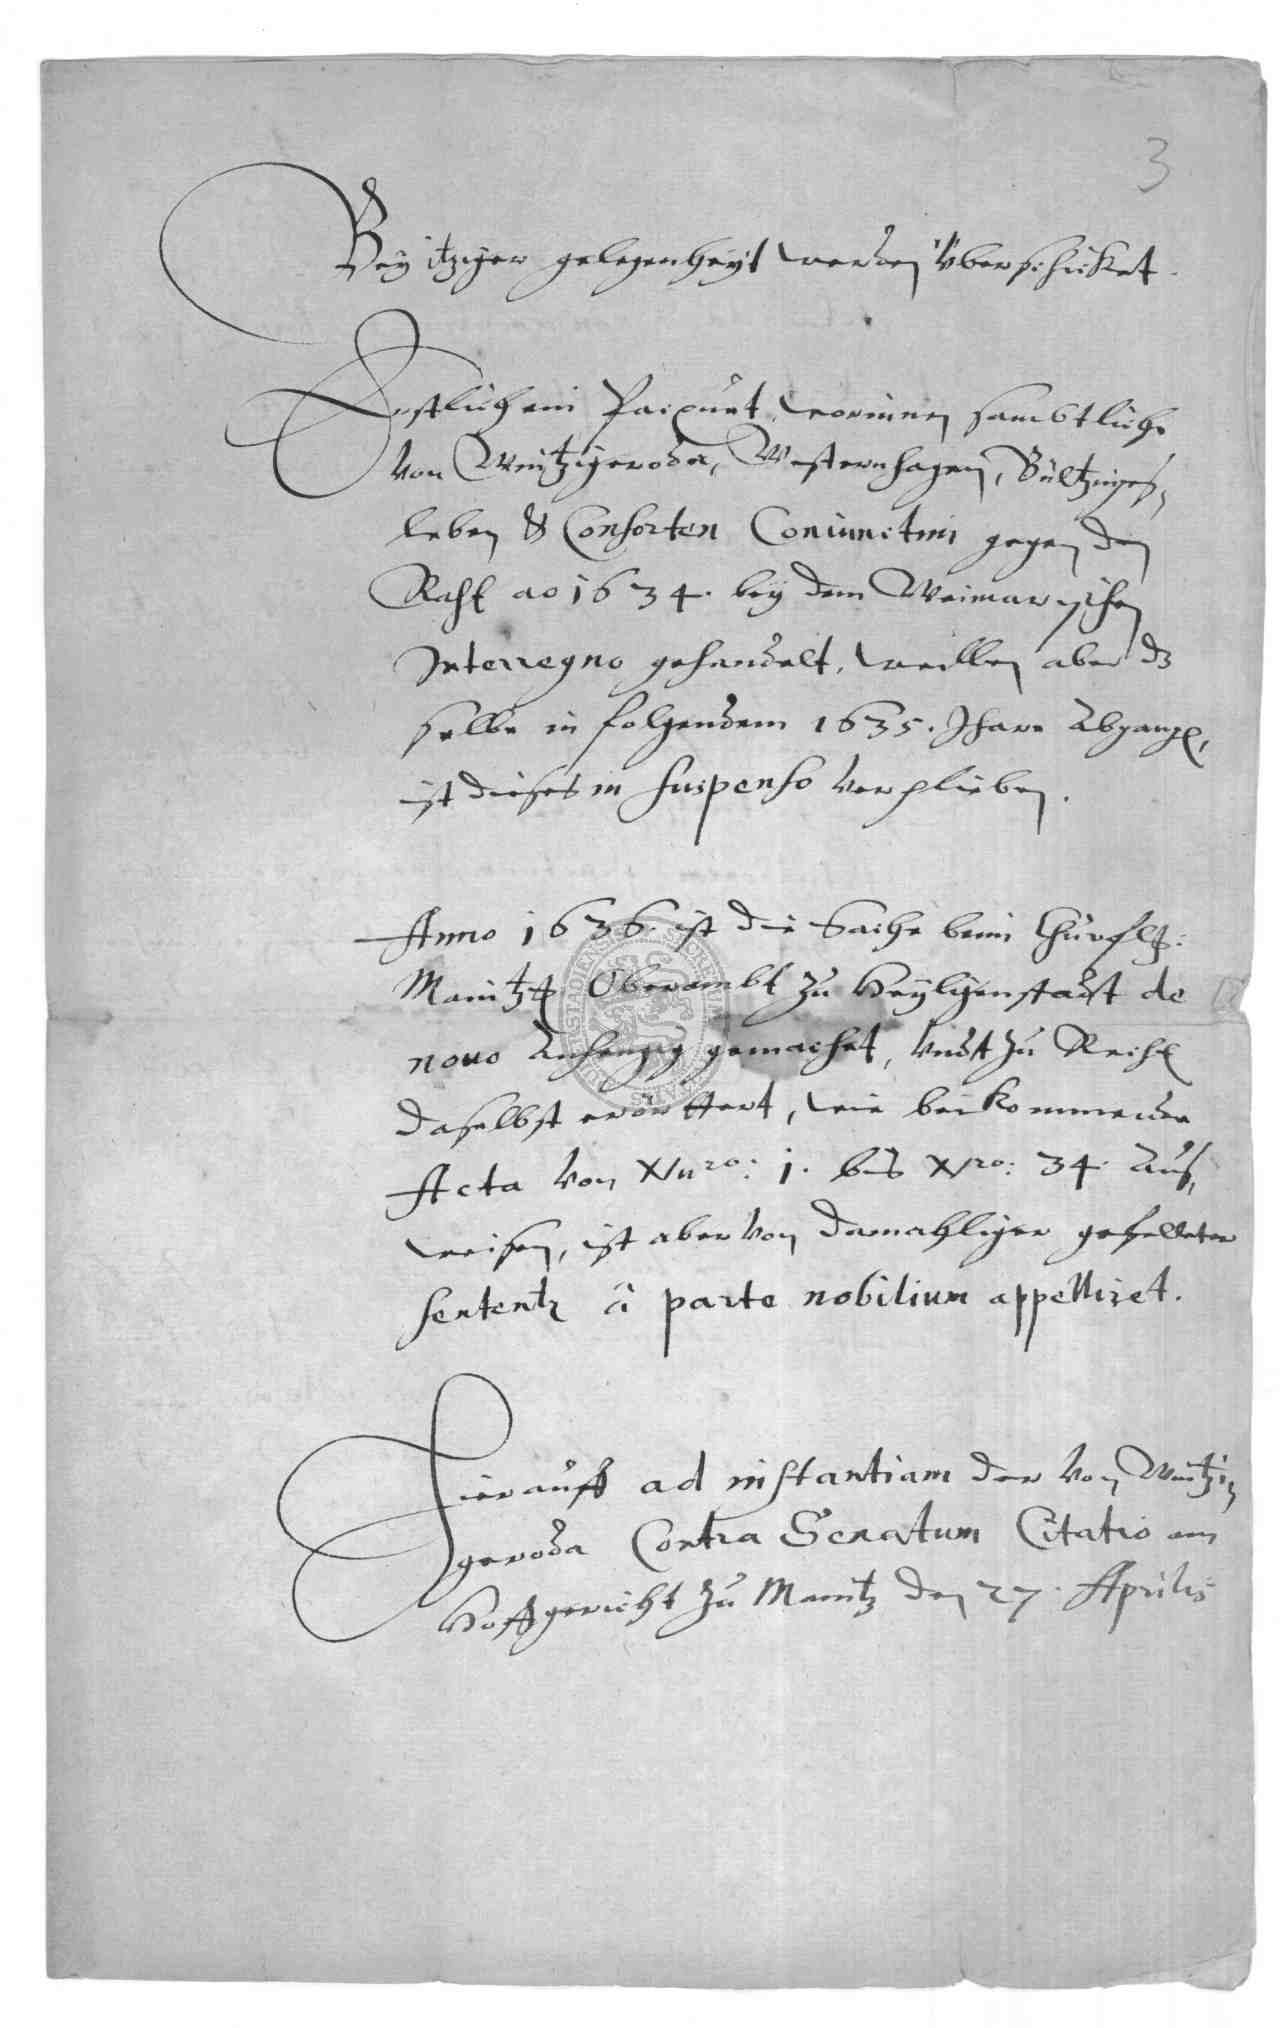 3
Bey itziger gelegenheyt werden überschicket.
Erstlich ein Pacquet, worinnen sambtliche
von Wintzigeroda, Westernhagen, Bültzings,
leben & Consorten Coniunctim gegen den
Raht ao 1634. bey dem Weimarischen
Interregno gehandelt, weillen aber dz
selbe in folgendem 1635. Jhare Abgangl,
ist dieses in suspenso verplieben.
Anno 1636. ist die Sache beim Churflg:
Maintz4. Oberambt zu Heyligenstadt de
nouo Anhengig gemachet, undt zu Recht
daselbst erörttert, wie beikommende
Acta von Nnro: 1. bis Nro: 34. Aus,
weisen, ist aber von damahliger gefelleter
sententz à parte nobilium appelliret.
Hierauff ad instantiam der von Wintzin
geroda Contra Senatum Citatio am
Hoffgericht zu Maintz den 27. Aprilis